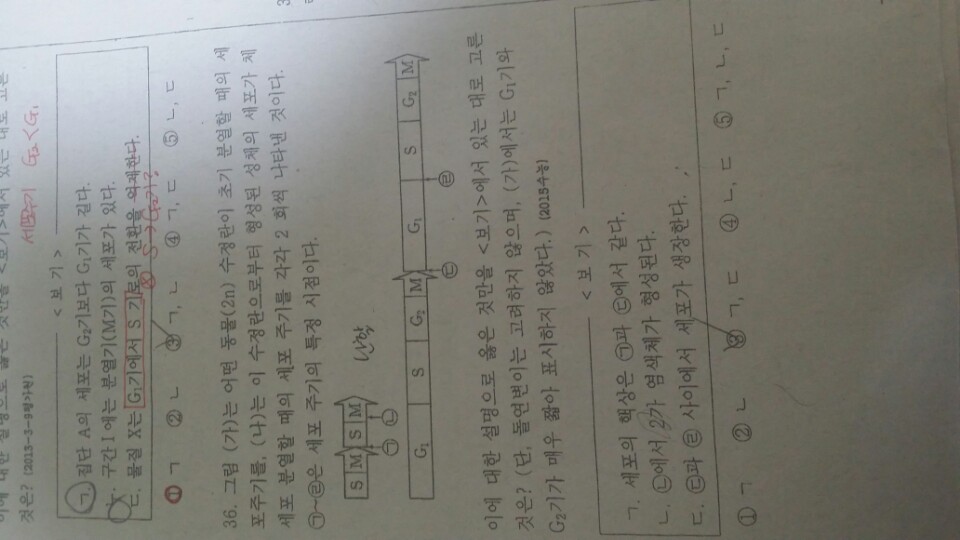 이에 대한 설명으로 옳은 것만을 <보기>에서 있는 대로 고른
것은? (2013-3-9평가원)
세포주기 G₂<G₁
<보 기>
ㄱ. 집단 A의 세포는 G₂기보다 G₁기가 길다.
ㄴ. 구간 I에는 분열기(M기)의 세포가 있다.
ㄷ. 물질 X는 G₁기에서 S 기로의 전환을 억제한다.
S→G₂기?
① ㄱ ② ㄴ ③ ㄱ, ㄴ ④ ㄱ, ㄷ ⑤ ㄴ, ㄷ
36. 그림 (가)는 어떤 동물(2n) 수정란이 초기 분열할 때의 세
포주기를, (나)는 이 수정란으로부터 형성된 성체의 세포가 체
세포 분열할 때의 세포 주기를 각각 2 회씩 나타낸 것이다.
㉠~㉣은 세포 주기의 특정 시점이다.
S M S M
㉠ ㉡
난할
G₁ S G₂ M G₁ S G₂ M
㉢ ㉣
이에 대한 설명으로 옳은 것만을 <보기>에서 있는 대로 고른
것은? (단, 돌연변이는 고려하지 않으며, (가)에서는 G₁기와
G₂기가 매우 짧아 표시하지 않았다.) (2013수능)
<보 기>
ㄱ. 세포의 핵상은 ㉠과 ㉢에서 같다.
ㄴ. ㉡에서 2가 염색체가 형성된다.
ㄷ. ㉢과 ㉣ 사이에서 세포가 생장한다.
① ㄱ ② ㄴ ③ ㄱ, ㄷ ④ ㄴ, ㄷ ⑤ ㄱ, ㄴ, ㄷ